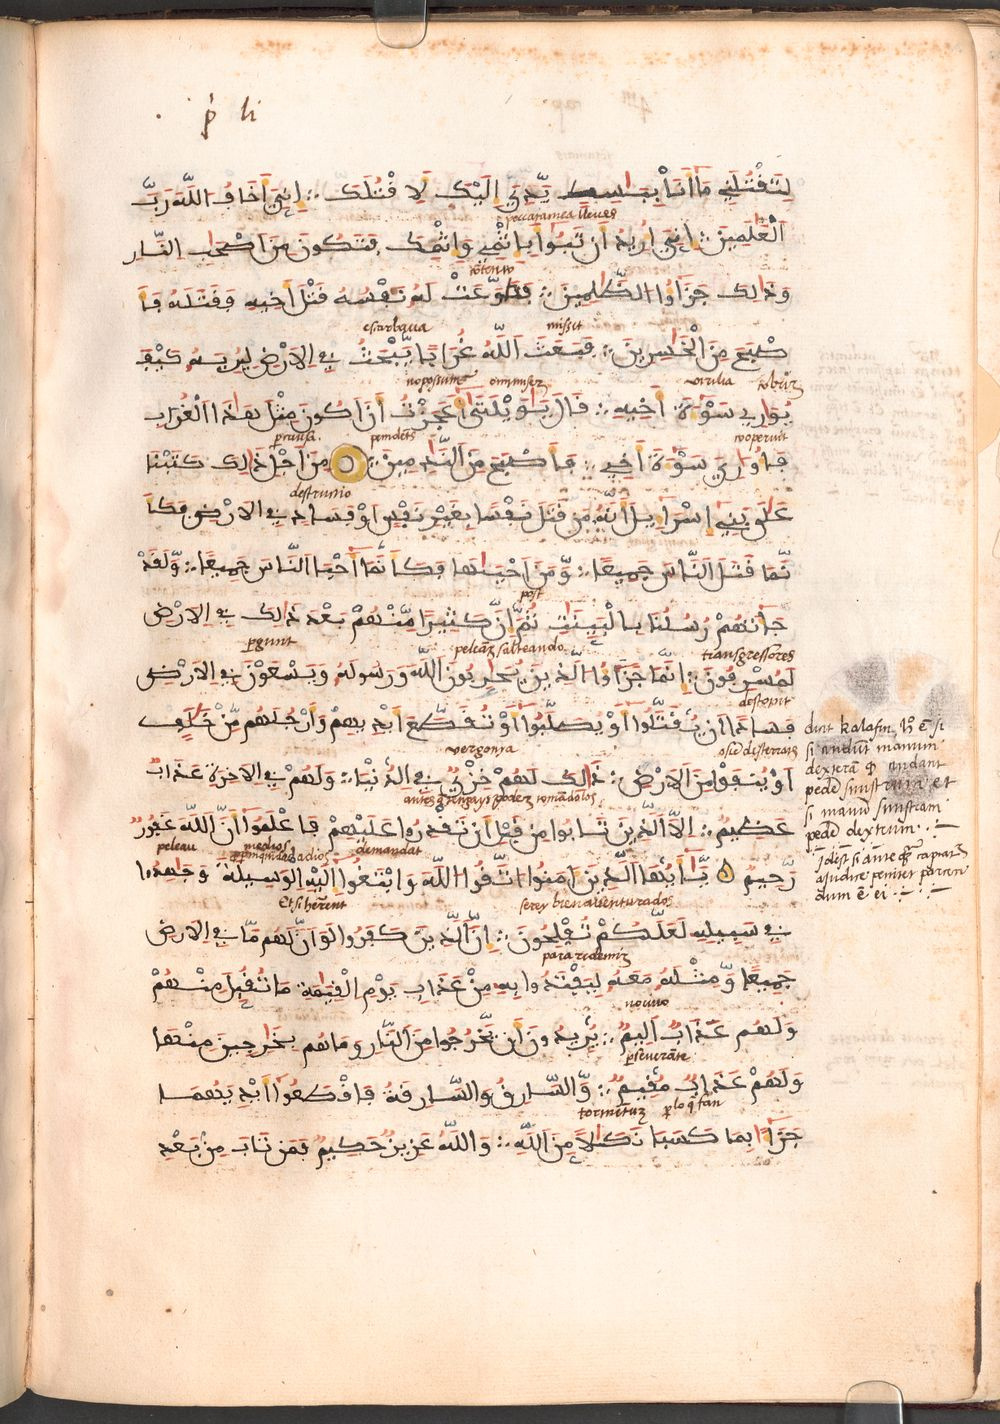 p̃ li
لِتَقْتُلَنِي مَا أَنَا بِبَاسِطٍ يَّدِيَ إِلَيْكَ لَا قْتُلَكَ ۞ إِنِّيَ أَخَافُ اللَّهَ رَبَّ
peccata mea lleves
الْعَٰلَمِينَ ۞ إِنِّيَ أُرِيدُ أَن تَبُوأَ بِإِثْمِي وَإِثْمِكَ فَتَكُونَ مِنَ أَصْحَٰبِ النَّارِ
وَذَٰلِكَ جَزَٰٓؤُا الظَّٰلِمِينَ ۞ فَطَوَّعَتْ لَهُ نَفْسُهُ قَتْلَ أَخِيهِ فَقَتَلَهُ فَأَ
escarbaua missit
صْبَحَ مِنَ الْخَٰسِرِينَ ۞ فَبَعَثَ اللَّهُ غُرَابًا يَبْحَثُ فِي الْأَرْضِ لِيُرِيَهُ كَيْفَ
no possum
يُوَٰرِي سَوْءَةَ أَخِيهِ ۞ قَالَ يَٰوَيْلَتَىٰ أَعَجَزْتُ أَنَ أَكُونَ مِثْلَ هَٰذَا الْغُرَابِ
cooperuit
فَأُوَٰرِيَ سَوْءَةَ أَخِي ۞ فَأَصْبَحَ مِنَ النَّٰدِمِينَ ۞ مِنَ أَجْلِ ذَٰلِكَ كَتَبْنَا
destructio
عَلَىٰ بَنِي إِسْرَآئِيلَ أَنَّهُ مَن قَتَلَ نَفْسًا بِغَيْرِ نَفْسٍ أَوْ فَسَادٍ فِي الْأَرْضِ فَكَأَ
نَّمَا قَتَلَ النَّاسَ جَمِيعًا ۞ وَّمَنَ أَحْيَاهَا فَكَأَنَّمَا أَحْيَا النَّاسَ جَمِيعًا ۞ وَّلَقَدْ
post
جَآءَتْهُمْ رُسُلُنَا بِالْبَيِّنَٰتِ ثُمَّ إِنَّ كَثِيرًا مِّنْهُمْ بَعْدَ ذَٰلِكَ فِي الْأَرْضِ
transgressores
لَمُسْرِفُونَ ۞ إِنَّمَا جَزَٰٓؤُا الَّذِينَ يُحَارِبُونَ اللَّهَ وَرَسُولَهُ وَيَسْعَوْنَ فِي الْأَرْضِ
فَسَادًا أَن يُّقَتَّلُوا أَوْ يُصَلَّبُوا أَوْ تُقَطَّعَ أَيْدِيهِمْ وَأَرْجُلُهُم مِّنْ خِلَٰفٍ
vergonja
أَوْ يُنفَوْا مِنَ الْأَرْضِ ۞ ذَٰلِكَ لَهُمْ خِزْيٌ فِي الدُّنْيَا ۞ وَلَهُمْ فِي الْآخِرَةِ عَذَابٌ
عَظِيمٌ ۞ إِلَّا الَّذِينَ تَابُوا مِن قَبْلِ أَن تَقْدِرُوا عَلَيْهِمْ فَاعْلَمُوا أَنَّ اللَّهَ غَفُورٌ
peleau medios demandat
رَّحِيمٌ ۞ يَٰٓأَيُّهَا الَّذِينَ آمَنُوا اتَّقُوا اللَّهَ وَابْتَغُوا إِلَيْهِ الْوَسِيلَةَ وَجَٰهِدُوا
serey bien auenturados
فِي سَبِيلِهِ لَعَلَّكُمْ تُفْلِحُونَ ۞ إِنَّ الَّذِينَ كَفَرُوا لَوَ أَنَّ لَهُم مَّا فِي الْأَرْضِ
جَمِيعًا وَّمِثْلَهُ مَعَهُ لِيَفْتَدُوا بِهِ مِنْ عَذَابِ يَوْمِ الْقِيَٰمَةِ مَا تُقُبِّلَ مِنْهُمْ
nociuo
وَلَهُم عَذَابٌ أَلِيمٌ ۞ يُرِيدُونَ أَن يَّخْرُجُوا مِنَ النَّارِ وَمَا هُم بِخَٰرِجِينَ مِنْهَا
وَلَهُمْ عَذَابٌ مُّقِيمٌ ۞ وَّالسَّارِقُ وَالسَّارِقَةُ فَاقْطَعُوا أَيْدِيَهُمَا
جَزَآءً بِمَا كَسَبَا نَكَٰلًا مِّنَ اللَّهِ ۞ وَاللَّهُ عَزِيزٌ حَكِيمٌ فَمَن تَابَ مِنۢ بَعْدِ
dint kalafin, h̃ ẽ si
si andũt manum
dexterã andant
pedẽ sinistrum et
si manũ sinistram
pedẽ dextrum